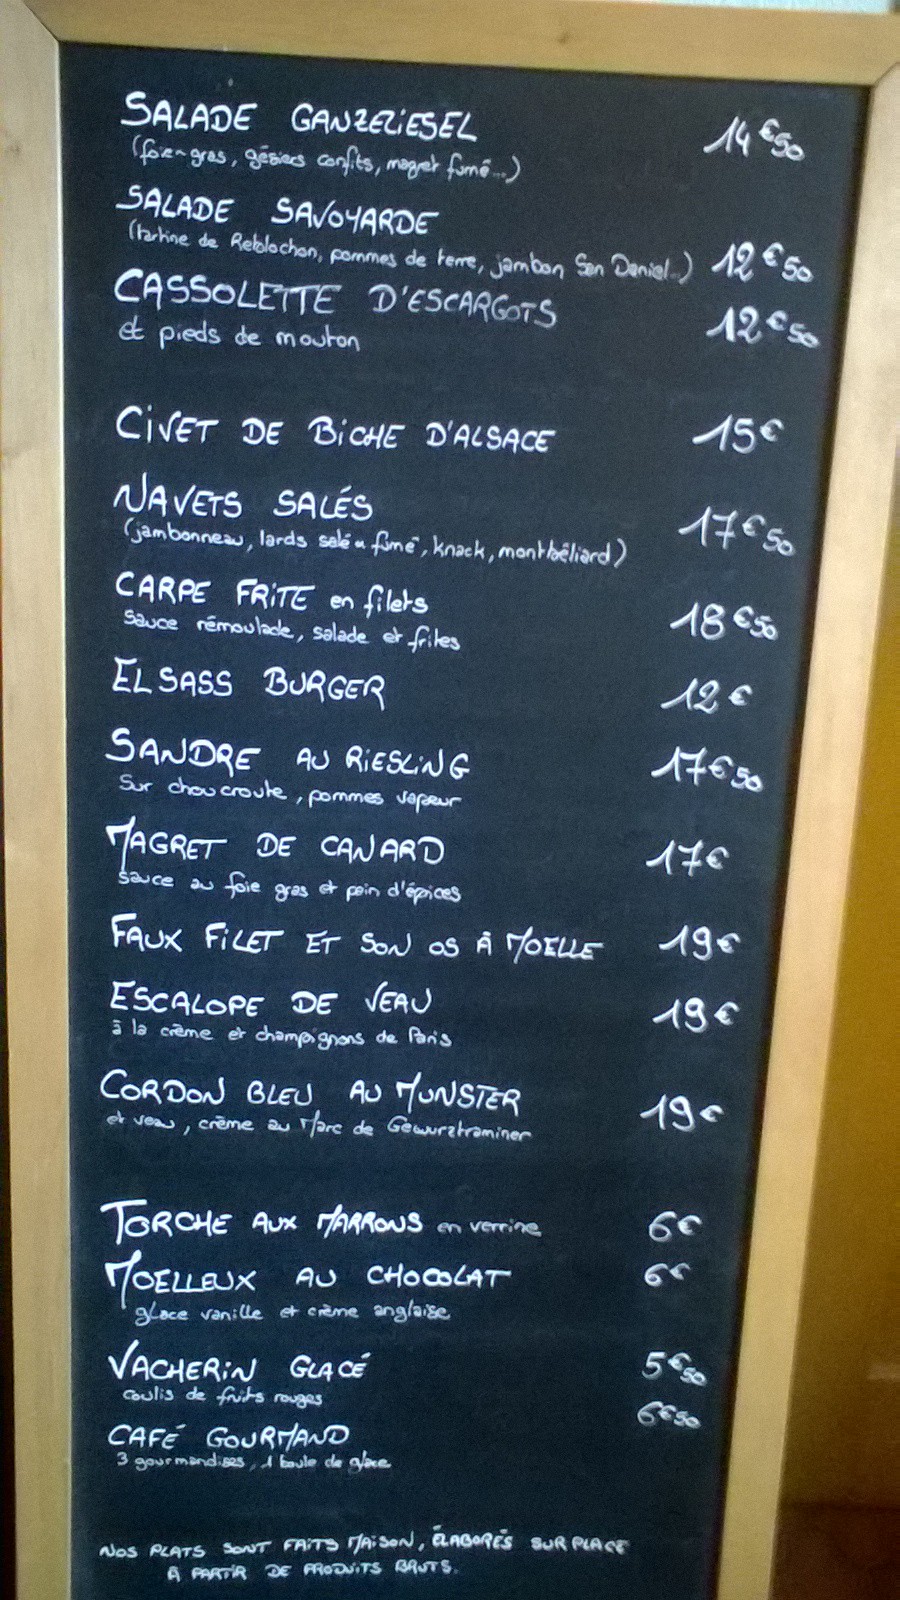 SALADE GANZELIESEL 14€50
(foie gras, gésiers confits, magret fumé...)
SALADE SAVOYARDE
(tartine de Reblochon, pommes de terre, jambon San Daniel..) 12€50
CASSOLETTE D'ESCARGOTS 12€50
et pieds de mouton
CIVET DE BICHE D'ALSACE 15€
NAVETS SALÉS 17€50
(jambonneau, lards salé fumé, knack, montbéliard)
CARPE FRITE en filets 18€50
sauce rémoulade, salade et frites
ELSASS BURGER 12€
SANDRE AU RIESLING 17€50
Sur choucroute, pommes vapeur
MAGRET DE CANARD 17€
sauce au foie gras et pain d'épices
FAUX FILET ET SON OS À MOELLE 19€
ESCALOPE DE VEAU 19€
à la crème et champignons de Paris
CORDON BLEU AU MUNSTER 19€
et veau, crème au Marc de Gewurztraminer
TORCHE AUX MARRONS en verrine 6€
MOELLEUX AU CHOCOLAT 6€
glace vanille et crème anglaise
VACHERIN GLACÉ 5€50
coulis de fruits rouges
CAFÉ GOURMAND 6€50
3 gourmandises, 1 boule de glace
NOS PLATS SONT FAITS MAISON, ÉLABORÉS SUR PLACE
A PARTIR DE PRODUITS BRUTS.